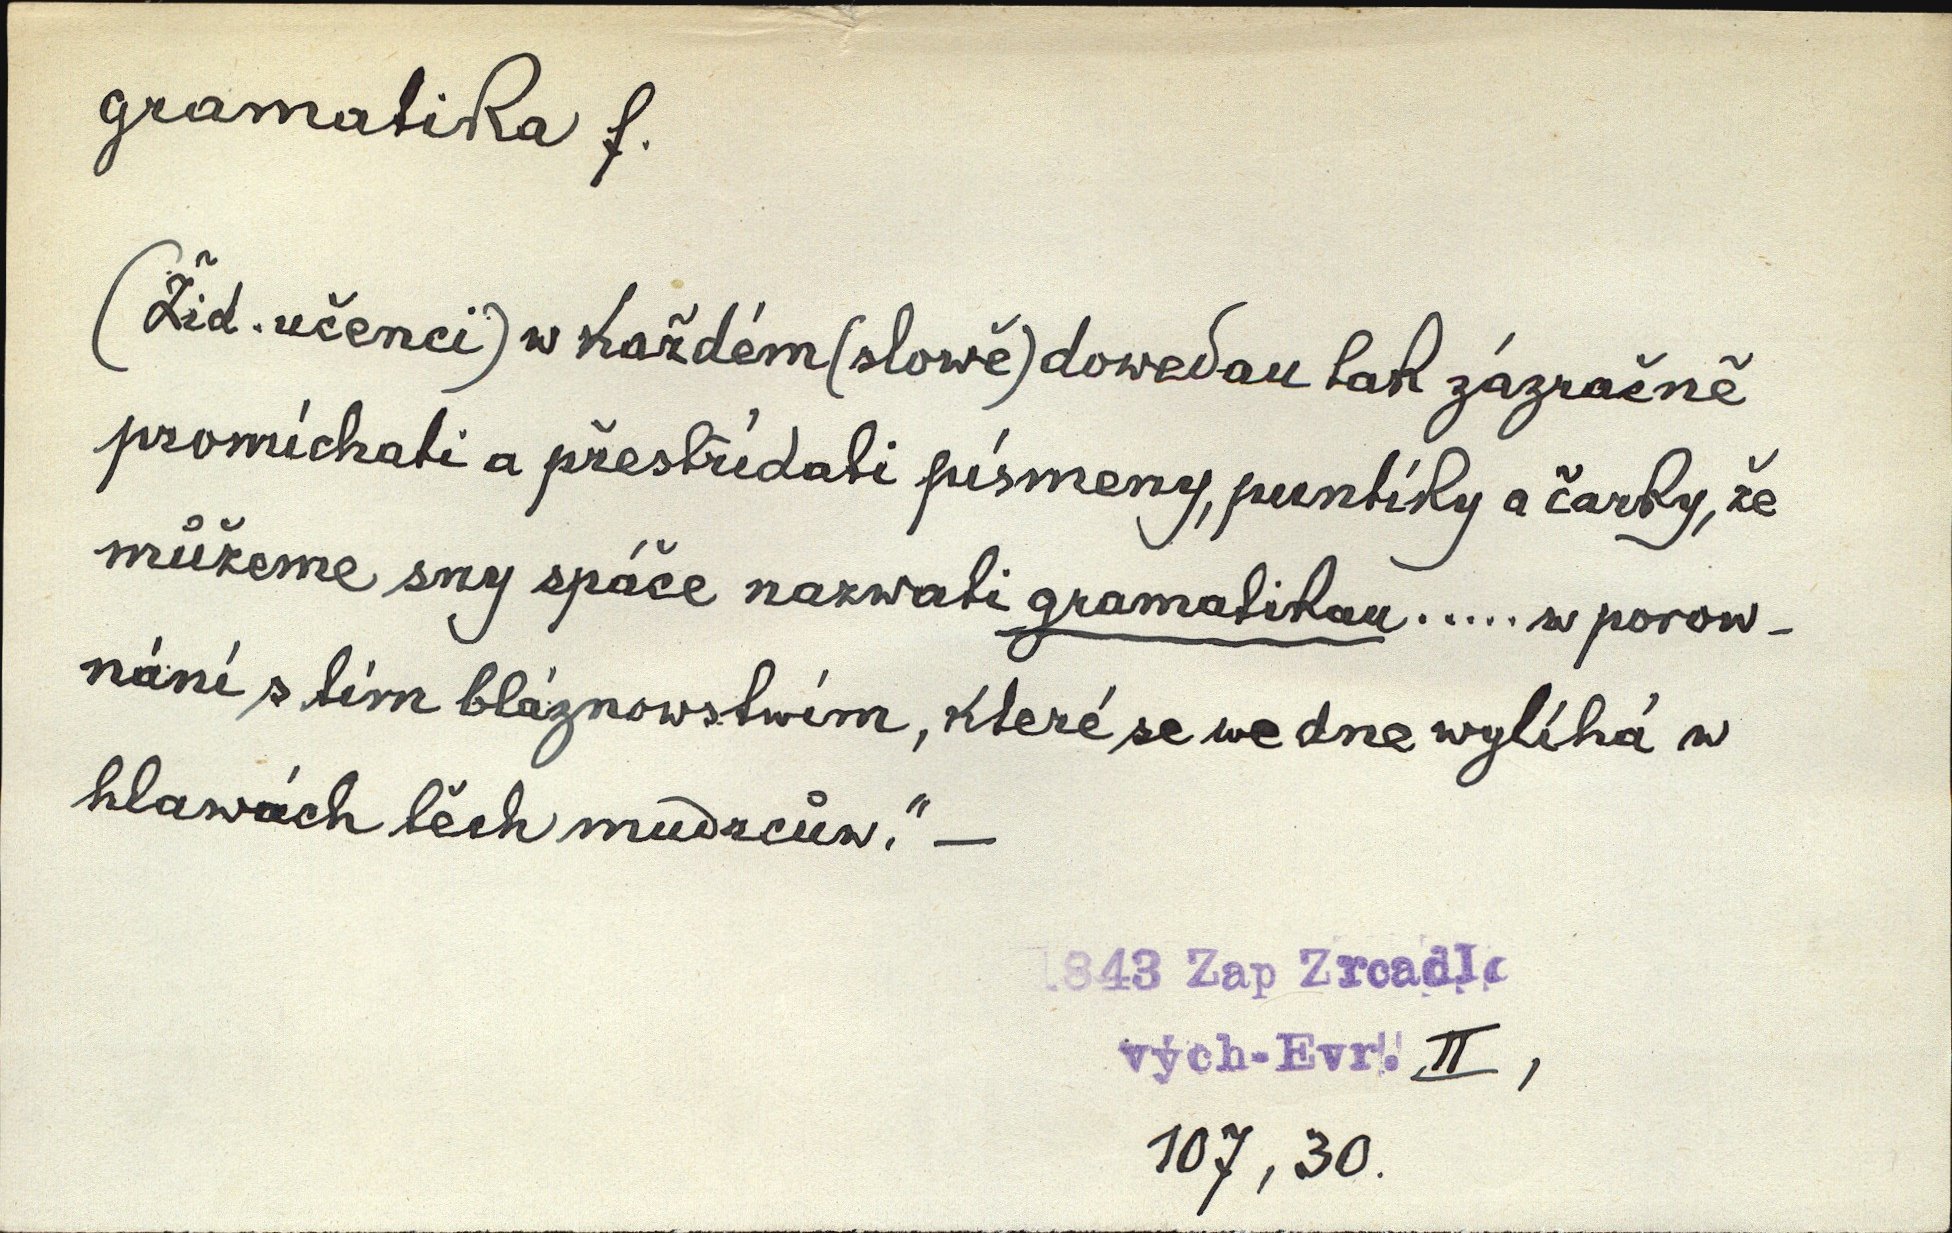 gramatika f.
(Žid. učenci) w každém (slowě) dowedau tak zázračně
promíchati a přestřídati písmeny, puntíky a čarky, že
můžeme sny spáče nazwati gramatikau ..... w porow-
nání s tím bláznowstwím, které se we dne wylíhá w
hlawách těch mudrcůw." —
1843 Zap Zrcadlo
vých-Evr. II,
107, 30.